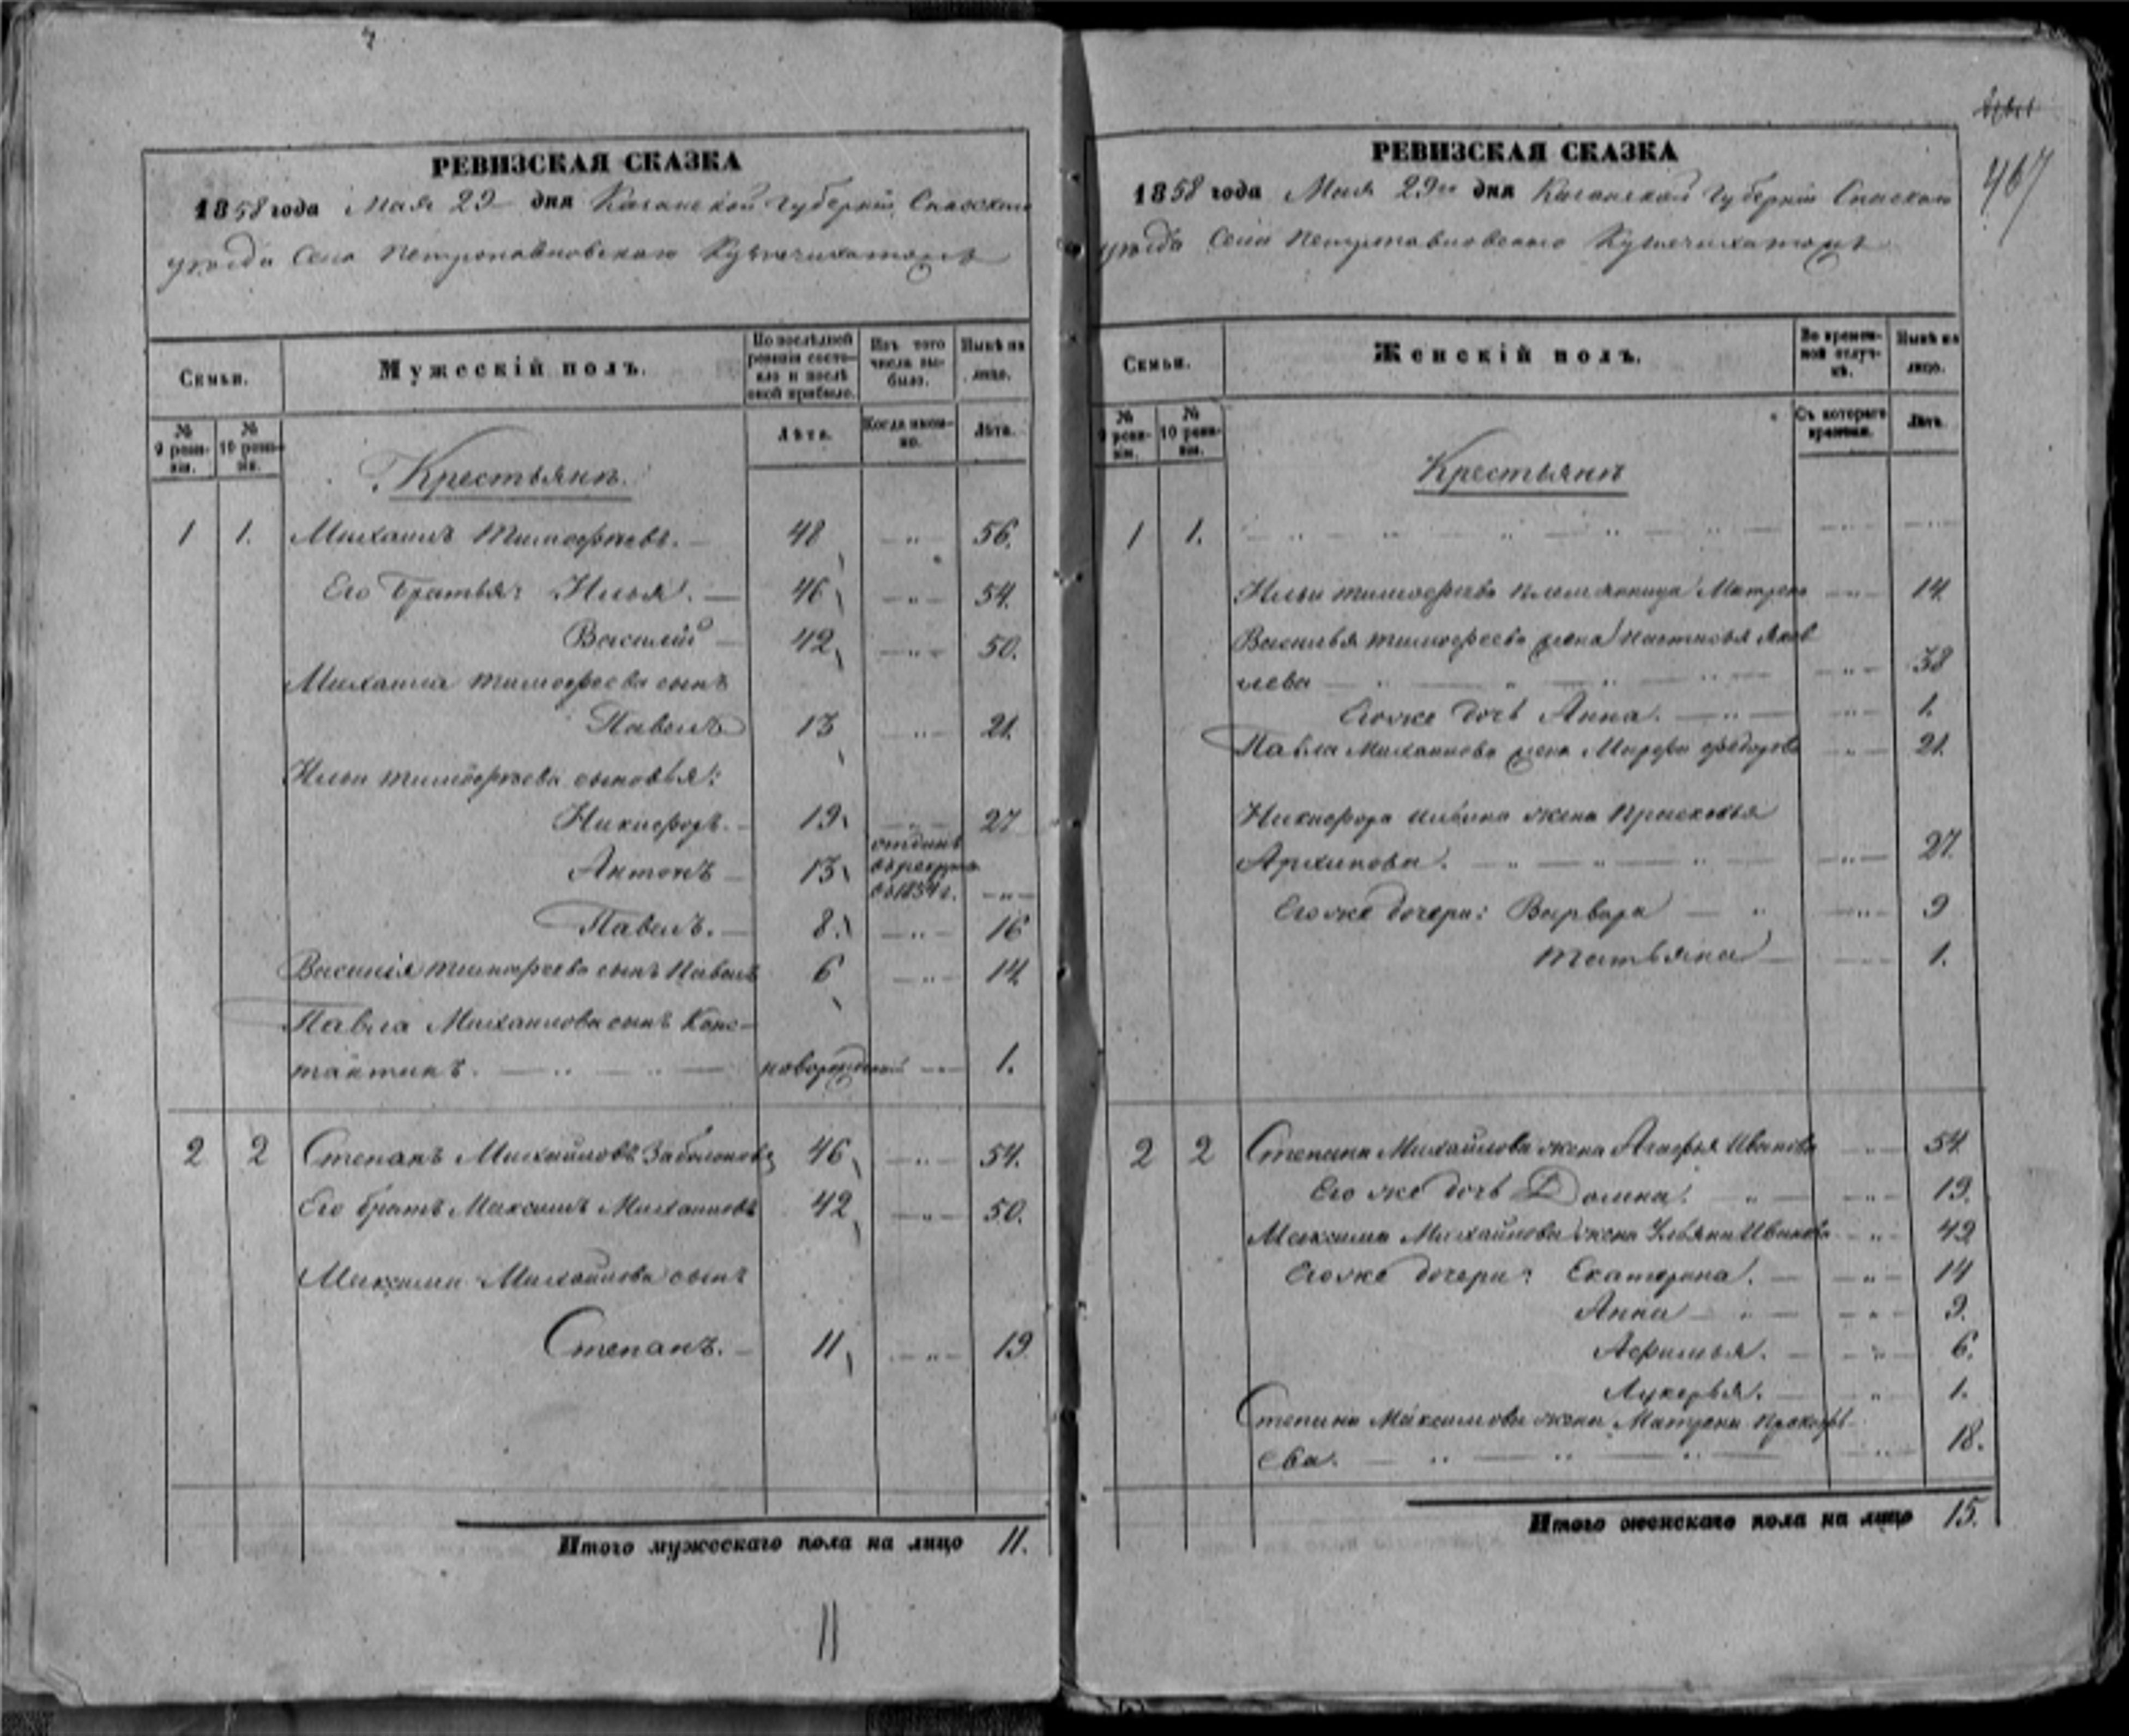 РЕВИЗСКАЯ СКАЗКА
1858 года Мая 29 дня Казанской Губерніи Спасскаго
уѣзда Села Петропавловскаго
Семьи.
Мужескій полъ.
По послѣдней ревизіи состояло и послѣ оной прибыло.
Изъ того числа выбыло.
Нынѣ на лицо.
№ 9 ревизіи.
№ 10 ревизіи.
Лѣта.
Когда именно.
Лѣта.
Крестьяне.
1 1. Михаилъ Тимофѣевъ. — 48 — „ — 56.
Его братья: Илья. — 46 — „ — 54.
Василій — 42 — „ — 50.
Михаила Тимофеева сынъ
Павелъ 13 — „ — 21.
Ильи Тимофѣева сыновья:
Никифоръ. — 19 — „ — 27
Антонъ — 13 отданъ въ рекруты въ 1854 г. — „ —
Павелъ. — 8. — „ — 16
Василія Тимофеева сынъ Павелъ 6 — „ — 14
Павла Михаилова сынъ Конс-
тантинъ. — „ — „ — новорожденный — „ — 1.
2 2 Степанъ Михайловъ 46 — „ — 54.
Его братъ Максимъ Михаиловъ 42 — „ — 50.
Максима Михайлова сынъ
Степанъ. — 11 — „ — 19
Итого мужескаго пола на лицо 11.
11
467
РЕВИЗСКАЯ СКАЗКА
1858 года Мая 29го дня Казанской Губерніи Спаскаго
уѣзда Села Петропавловскаго
Семьи.
Женскій полъ.
Во временной отлучкѣ.
Нынѣ на лицо.
№ 9 ревизіи.
№ 10 ревизіи.
Съ котораго времени.
Лѣта.
Крестьяне
1 1. — „ — „ — „ — „ —
Ильи Тимофеева племянница Матрена — „ — 14
Василья Тимофеева жена Настасья Яков
лева — „ — „ — „ — 38
Егоже дочь Анна. — „ — 1.
Павла Михаилова жена Марфа Федорова — „ — 21.
Никифора Ильина жена Прасковья
Архипова. — „ — „ — „ — 27.
Егоже дочери: Варвара — „ — 9
Татьяна — 1.
2 2 Степана Михайлова жена Агафья Иванова — „ — 54
Его же дочь Домна. — „ — 19.
Максима Михайлова жена Ульяна Иванова — „ — 42
Егоже дочери: Екатерина. — „ — 14
Анна — „ — 9.
Афимья. — „ — 6.
Лукерья. — „ — 1.
Степана Максимова жена Матрена Прокофь-
ева. — „ — „ — „ — 18.
Итого женскаго пола на лицо 15.